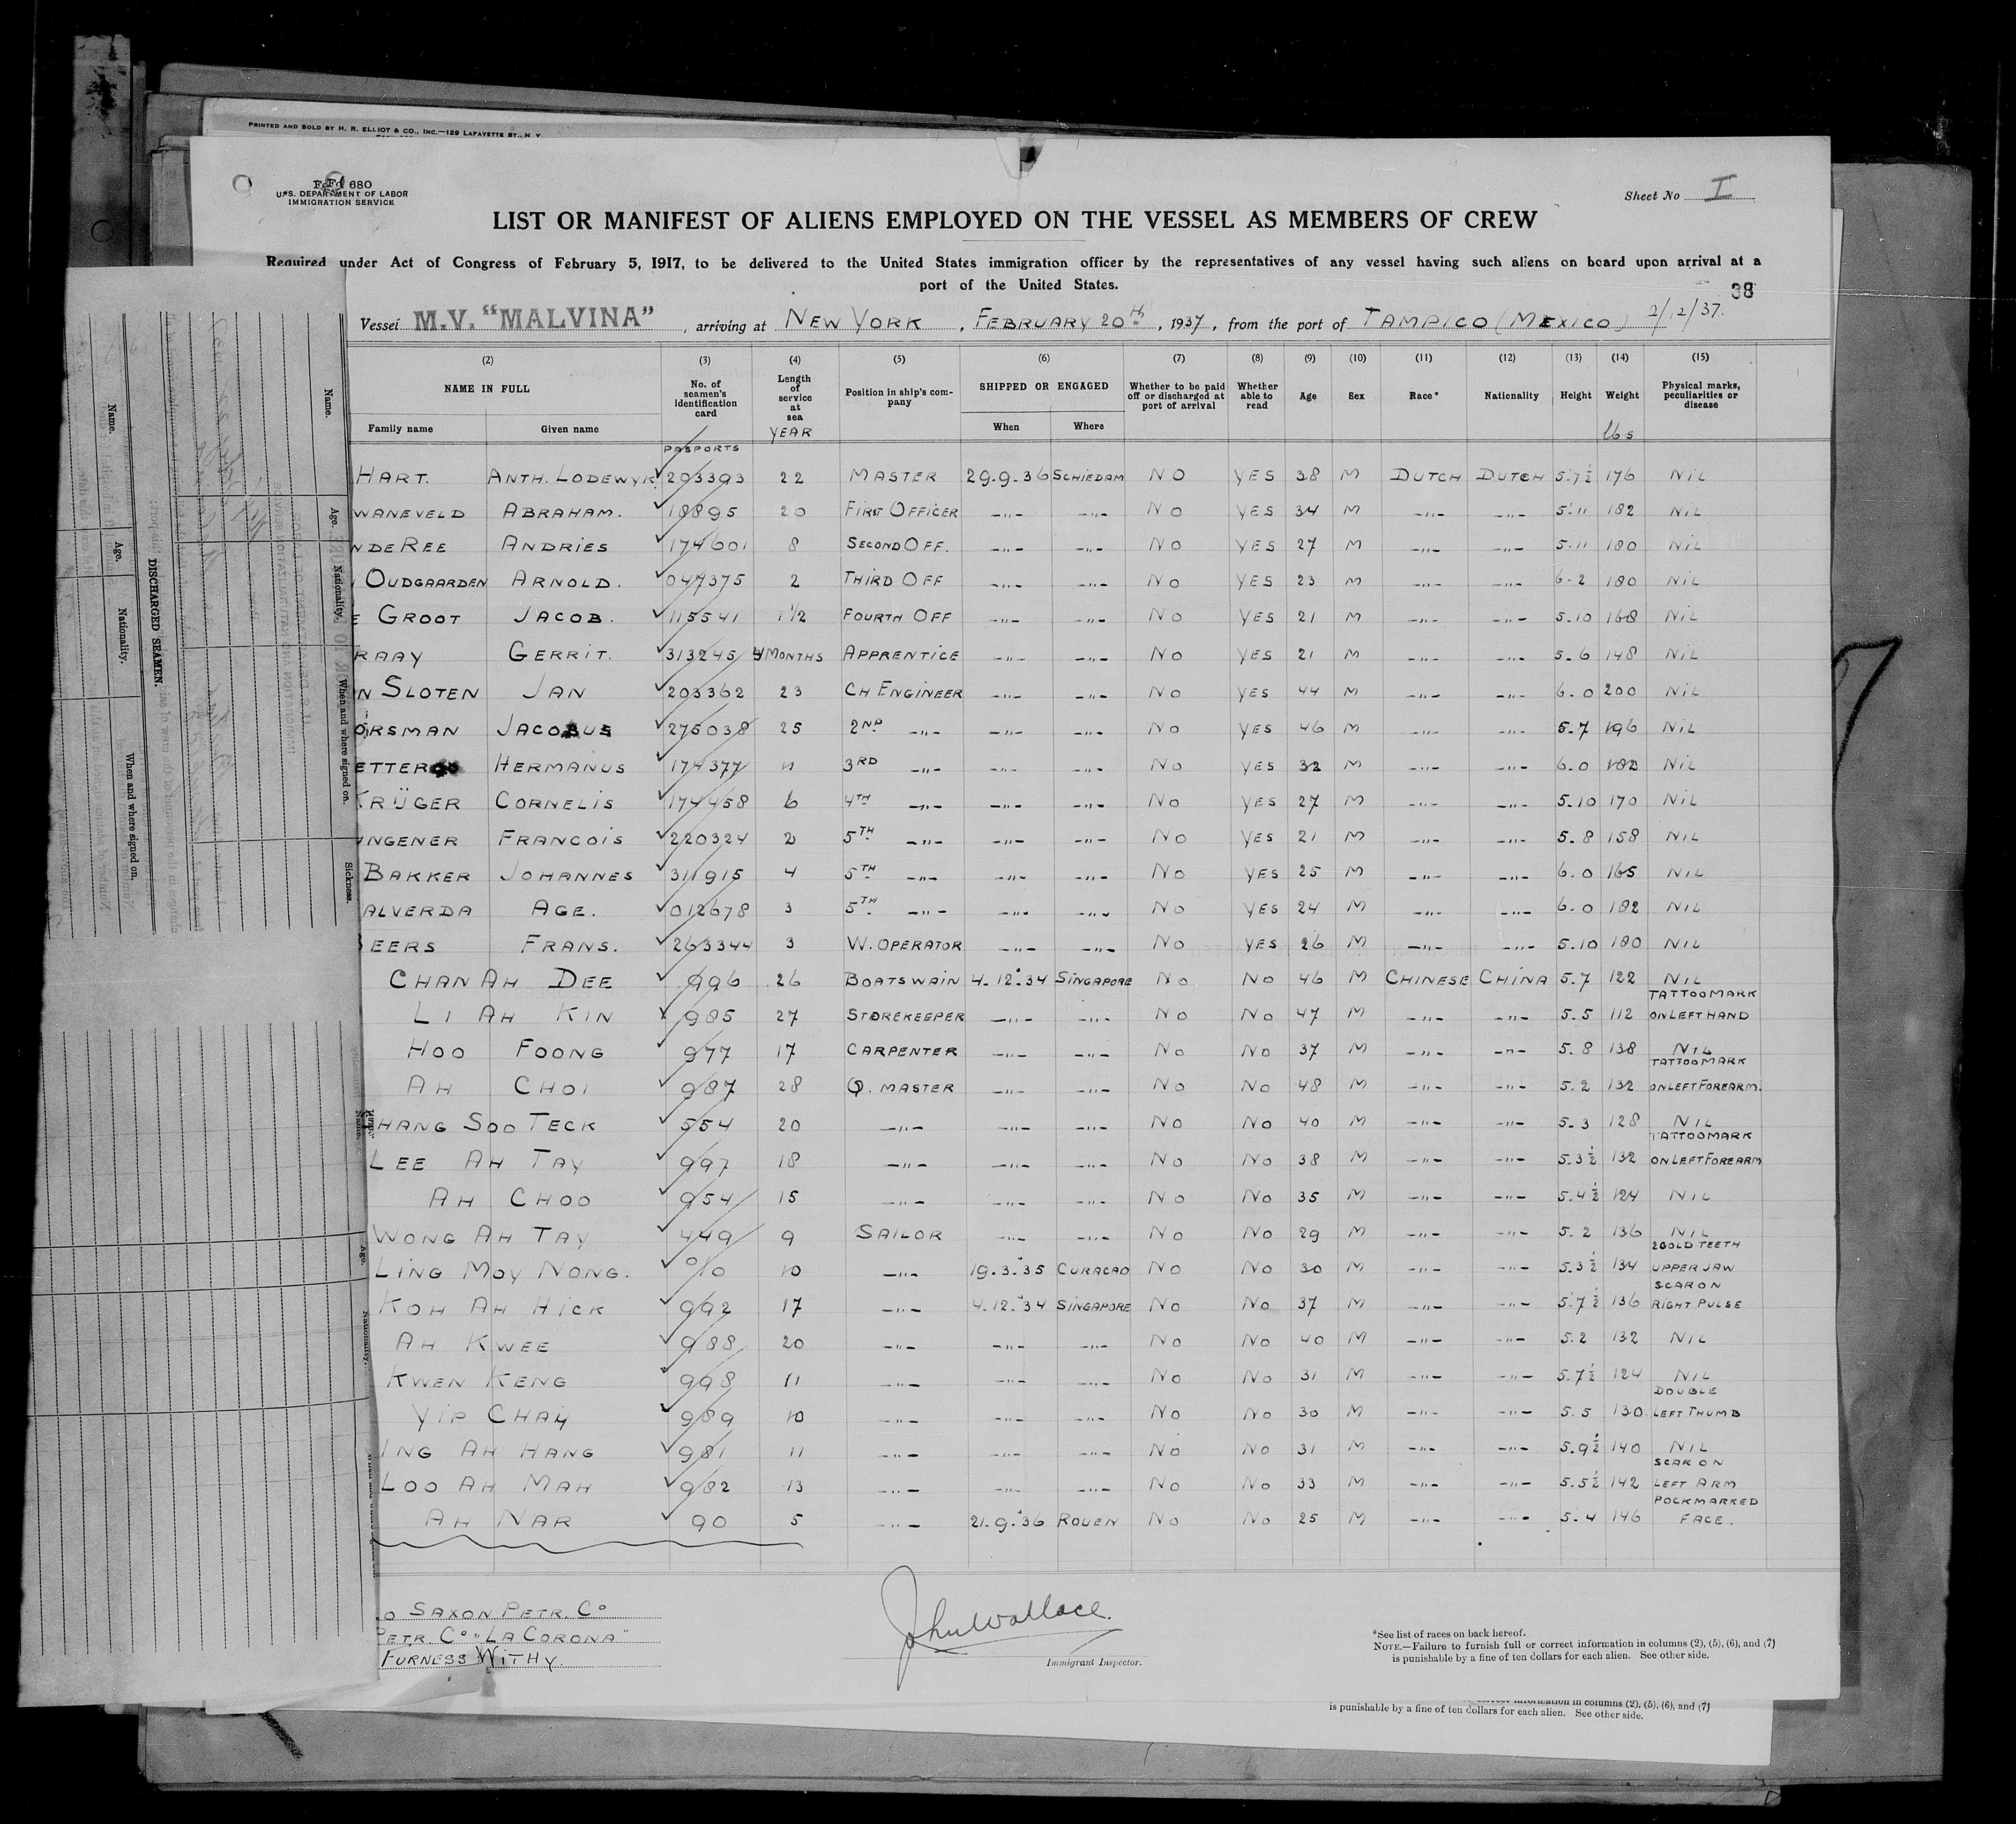 PRINTED AND SOLD BY H. R. ELLIOT & CO., INC.—129 LAFAYETTE ST., N. Y
680
U.S. DEPARTMENT OF LABOR
IMMIGRATION SERVICE
Sheet No I
LIST OR MANIFEST OF ALIENS EMPLOYED ON THE VESSEL AS MEMBERS OF CREW
Required under Act of Congress of February 5, 1917, to be delivered to the United States immigration officer by the representatives of any vessel having such aliens on board upon arrival at a
port of the United States.
38
Vessel M.V. "MALVINA", arriving at NEW YORK, FEBRUARY 20th, 1937, from the port of TAMPICO (MEXICO) 2/12/37.
(2) (3) (4) (5) (6) (7) (8) (9) (10) (11) (12) (13) (14) (15)
NAME IN FULL No. of seamen's identification card Length of service at sea Position in ship's company SHIPPED OR ENGAGED Whether to be paid off or discharged at port of arrival Whether able to read Age Sex Race* Nationality Height Weight Physical marks, peculiarities or disease
Family name Given name YEAR When Where lbs
PASPORTS
HART. ANTH. LODEWYK 203393 22 MASTER 29.9.36 SCHIEDAM NO YES 38 M DUTCH DUTCH 5.7½ 176 NIL
WANEVELD ABRAHAM. 18895 20 FIRST OFFICER -"- -"- NO YES 34 M -"- -"- 5.11 182 NIL
NDEREE ANDRIES 174601 8 SECOND OFF. -"- -"- NO YES 27 M -"- -"- 5.11 180 NIL
OUDGAARDEN ARNOLD. 047375 2 THIRD OFF -"- -"- NO YES 23 M -"- -"- 6-2 180 NIL
E GROOT JACOB. 115541 1½ FOURTH OFF -"- -"- NO YES 21 M -"- -"- 5.10 168 NIL
RAAY GERRIT. 313245 4 MONTHS APPRENTICE -"- -"- NO YES 21 M -"- -"- 5.6 148 NIL
N SLOTEN JAN 203362 23 CH ENGINEER -"- -"- NO YES 44 M -"- -"- 6.0 200 NIL
ORSMAN JACOBUS 275038 25 2ND -"- -"- -"- NO YES 46 M -"- -"- 5.7 196 NIL
ETTER HERMANUS 174377 11 3RD -"- -"- -"- NO YES 32 M -"- -"- 6.0 182 NIL
KRÜGER CORNELIS 174458 6 4TH -"- -"- -"- NO YES 27 M -"- -"- 5.10 170 NIL
NGENER FRANCOIS 220324 2 5TH -"- -"- -"- NO YES 21 M -"- -"- 5.8 158 NIL
BAKKER JOHANNES 311915 4 5TH -"- -"- -"- NO YES 25 M -"- -"- 6.0 165 NIL
ALVERDA AGE. 012678 3 5TH -"- -"- -"- NO YES 24 M -"- -"- 6.0 182 NIL
BEERS FRANS. 263344 3 W. OPERATOR -"- -"- NO YES 26 M -"- -"- 5.10 180 NIL
CHAN AH DEE 996 26 BOATSWAIN 4.12.34 SINGAPORE NO NO 46 M CHINESE CHINA 5.7 122 NIL
LI AH KIN 985 27 STOREKEEPER -"- -"- NO NO 47 M -"- -"- 5.5 112 TATTOOMARK ON LEFT HAND
HOO FOONG 977 17 CARPENTER -"- -"- NO NO 37 M -"- -"- 5.8 138 NIL
AH CHOI 987 28 Q. MASTER -"- -"- NO NO 48 M -"- -"- 5.2 132 TATTOOMARK ON LEFT FOREARM.
HANG SOO TECK 554 20 -"- -"- -"- NO NO 40 M -"- -"- 5.3 128 NIL
LEE AH TAY 997 18 -"- -"- -"- NO NO 38 M -"- -"- 5.3½ 132 TATTOOMARK ON LEFT FOREARM
AH CHOO 954 15 -"- -"- -"- NO NO 35 M -"- -"- 5.4½ 124 NIL
WONG AH TAY 449 9 SAILOR -"- -"- NO NO 29 M -"- -"- 5.2 136 NIL
LING MOY NONG. 010 10 -"- 19.3.35 CURACAO NO NO 30 M -"- -"- 5.3½ 134 2 GOLD TEETH UPPER JAW
KOH AH HICK 992 17 -"- 4.12.34 SINGAPORE NO NO 37 M -"- -"- 5.7½ 136 SCAR ON RIGHT PULSE
AH KWEE 988 20 -"- -"- -"- NO NO 40 M -"- -"- 5.2 132 NIL
KWEN KENG 998 11 -"- -"- -"- NO NO 31 M -"- -"- 5.7½ 124 NIL
YIP CHAY 989 10 -"- -"- -"- NO NO 30 M -"- -"- 5.5 130 DOUBLE LEFT THUMB
ING AH HANG 981 11 -"- -"- -"- NO NO 31 M -"- -"- 5.9½ 140 NIL
LOO AH MAH 982 13 -"- -"- -"- NO NO 33 M -"- -"- 5.5½ 142 SCAR ON LEFT ARM
AH NAR 90 5 -"- 21.9.36 ROUEN NO NO 25 M -"- -"- 5.4 146 POCKMARKED FACE.
O SAXON PETR. Co
PETR. Co "LA CORONA"
FURNESS WITHY.
John Wallace.
Immigrant Inspector.
*See list of races on back hereof.
NOTE.—Failure to furnish full or correct information in columns (2), (5), (6), and (7)
is punishable by a fine of ten dollars for each alien. See other side.
information in columns (2), (5), (6), and (7)
is punishable by a fine of ten dollars for each alien. See other side.
DISCHARGED SEAMEN.
Name. Age. Nationality. When and where signed on.
Name. Age. Nationality. When and where signed on. Sickness.